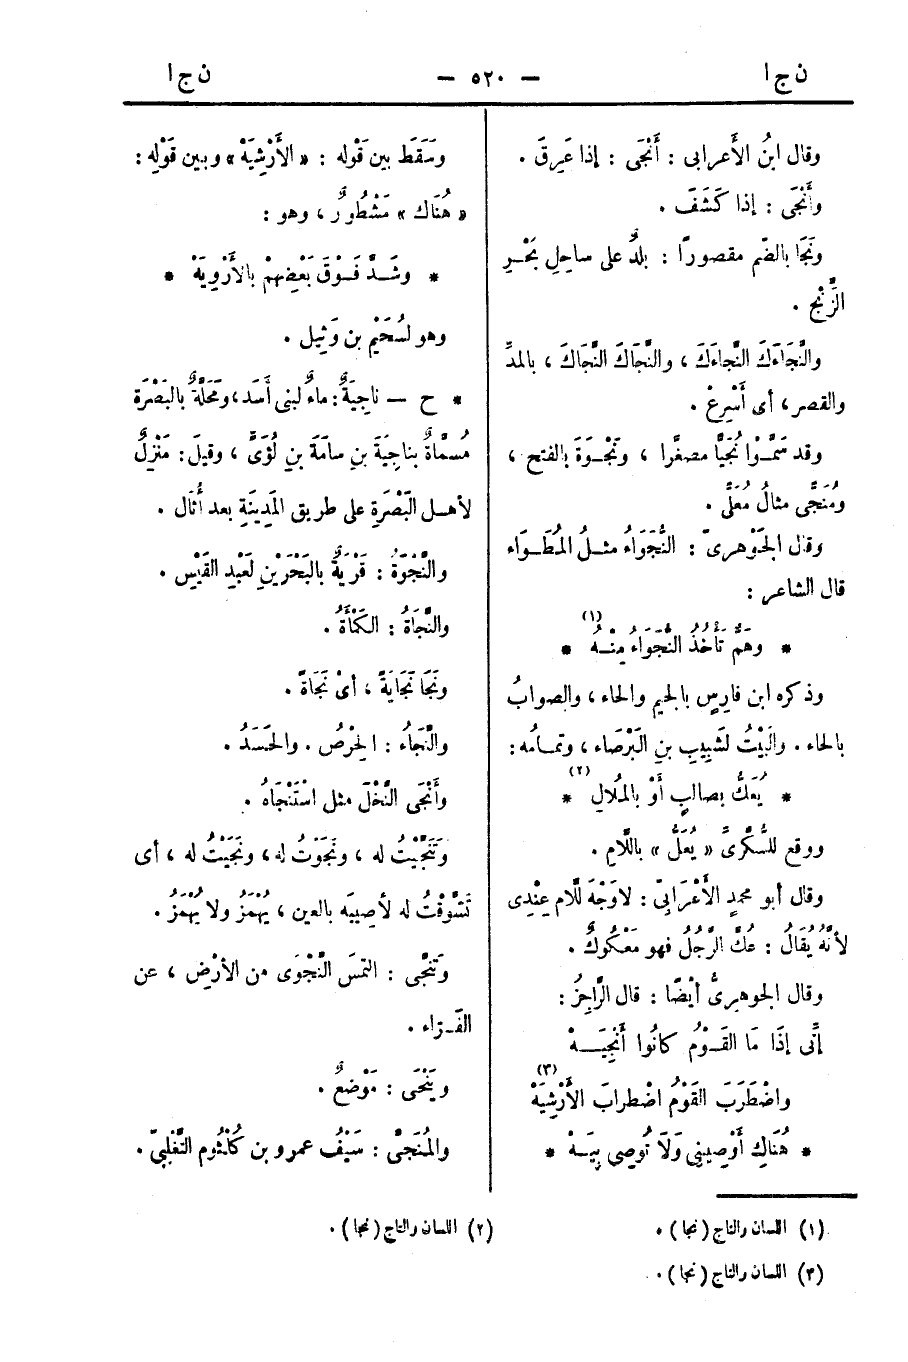 ن ج ا — ٥٢٠ — ن ج ا
وقال ابنُ الأَعرابى : أَنْجَى : إذا عَرِقَ .
وأَنْجَى : إذا كَشَفَ .
ونُجَا بالضّم مقصورًا : بلدٌ على ساحِلِ بَحْرِ
الزَّنْجِ .
والنَّجَاءَكَ النَّجاءَكَ ، والنَّجَاكَ النَّجاكَ ، بالمدِّ
والقصر ، أى أَسْرِعْ .
وقد سَمَّوْا نُجَيًّا مصغرًا ، ونَجْوَةَ بالفتح ،
ومُنَجًّى مثالُ مُعَلًّى .
وقال الجَوْهرىّ : النُّجَوَاءُ مثلُ المُطَوَاء
قال الشاعر :
* وهَمٌّ تَأْخُذُ النُّجَوَاءُ مِنْهُ (١) *
وذكره ابن فارِسٍ بالجيم والحاء ، والصوابُ
بالحاء . والبَيْتُ لشَبِيبِ بنِ البَرْصَاء ، وتمامُه :
* يُعَكُّ بصالِبٍ أَوْ بالمُلالِ (٢) *
ووقع للسُّكَّرىّ « يُعَلُّ » باللَّامِ .
وقال أبو محمدٍ الأَعْرَابىّ : لاوَجْهَ للَّام عِنْدِى
لأَنَّهُ يُقَالُ : عُكَّ الرَّجُلُ فهو مَعْكُوكٌ .
وقال الجوهرىُّ أيْضًا : قال الرَّاجِزُ :
إنِّى إذَا مَا القَوْمُ كانُوا أَنْجِيَهْ
واضْطَرَبَ القَوْمُ اضْطرابَ الأَرْشِيَهْ (٣)
* هُنَاكِ أَوْصِينِى وَلَا تُوصِى بِيَهْ *
وسَقَط بين قَوْله : « الأَرْشِيَهْ » وبين قَوْلِه :
« هُنَاك » مَشْطُورٌ ، وهو :
* وشَدَّ فَوْقَ بَعْضِهِمْ بالأَرْوِيَهْ *
وهو لسُحَيْم بن وَثِيل .
* ح — ناجِيَةُ : ماءٌ لبنى أَسَد ، ومَحَلَّةٌ بالبَصْرَة
مُسَمَّاةٌ بناجِيَةَ بنِ سامَةَ بنِ لُؤَىّ ، وقيلَ : مَنْزِلٌ
لأهـل البَصْرَةِ على طريق المَدِينَةِ بعد أُثَال .
والنَّجْوَةُ : قَرْيَةٌ بالبَحْرَيْنِ لعَبْدِ القَيْس .
والنَّجَاةُ : الكَمْأَةُ .
ونَجَا نَجَايَةً ، أىْ نَجَاةً .
والنَّجَاءُ : الحِرْصُ . والحَسَدُ .
وأَنْجَى النَّخْلَ مثل اسْتَنْجَاهُ .
وتَنَجَّيْتُ له ، ونَجَوْتُ له ، ونَجَيْتُ له ، أى
تَشَوَّفْتُ له لأُصِيبَه بالعين ، يُهْمَزُ ولا يُهْمَزُ .
وتَنَجَّى : التمسَ النَّجْوَى من الأَرْضِ ، عن
الفَرّاء .
ويَنْجَى : مَوْضعٌ .
والمُنَجَّى : سَيْفُ عمرو بن كُلْثُوم التَّغْلِبِىّ .
(١) اللسان والتاج (نجا) . (٢) اللسان والتاج (نجا) .
(٣) اللسان والتاج (نجا) .